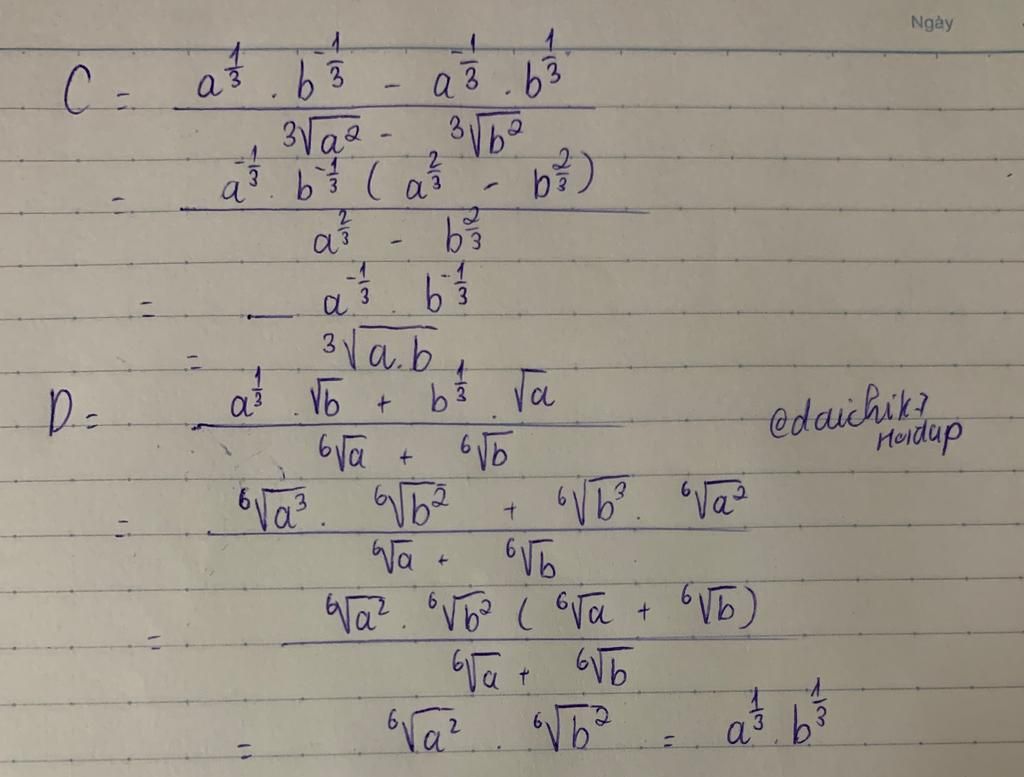 Ngày
C = \frac{a^{\frac{1}{3}} . b^{-\frac{1}{3}} - a^{-\frac{1}{3}} . b^{\frac{1}{3}}}{\sqrt[3]{a^2} - \sqrt[3]{b^2}}
= \frac{a^{-\frac{1}{3}} . b^{-\frac{1}{3}} ( a^{\frac{2}{3}} - b^{\frac{2}{3}} )}{a^{\frac{2}{3}} - b^{\frac{2}{3}}}
= — a^{-\frac{1}{3}} . b^{-\frac{1}{3}}
= \sqrt[3]{a.b}
D = \frac{a^{\frac{1}{3}} . \sqrt{b} + b^{\frac{1}{3}} . \sqrt{a}}{\sqrt[6]{a} + \sqrt[6]{b}}
= \frac{\sqrt[6]{a^3} . \sqrt[6]{b^2} + \sqrt[6]{b^3} . \sqrt[6]{a^2}}{\sqrt[6]{a} + \sqrt[6]{b}}
= \frac{\sqrt[6]{a^2} . \sqrt[6]{b^2} ( \sqrt[6]{a} + \sqrt[6]{b} )}{\sqrt[6]{a} + \sqrt[6]{b}}
= \sqrt[6]{a^2} . \sqrt[6]{b^2} = a^{\frac{1}{3}} . b^{\frac{1}{3}}